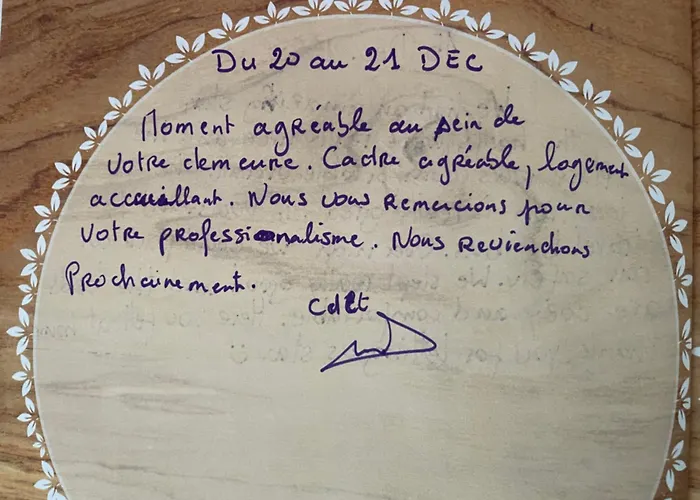 Du 20 au 21 DEC
Moment agréable au sein de
votre demeure. Cadre agréable, logement
accueillant. Nous vous remercions pour
votre professionnalisme. Nous reviendrons
Prochainement.
Cdlt